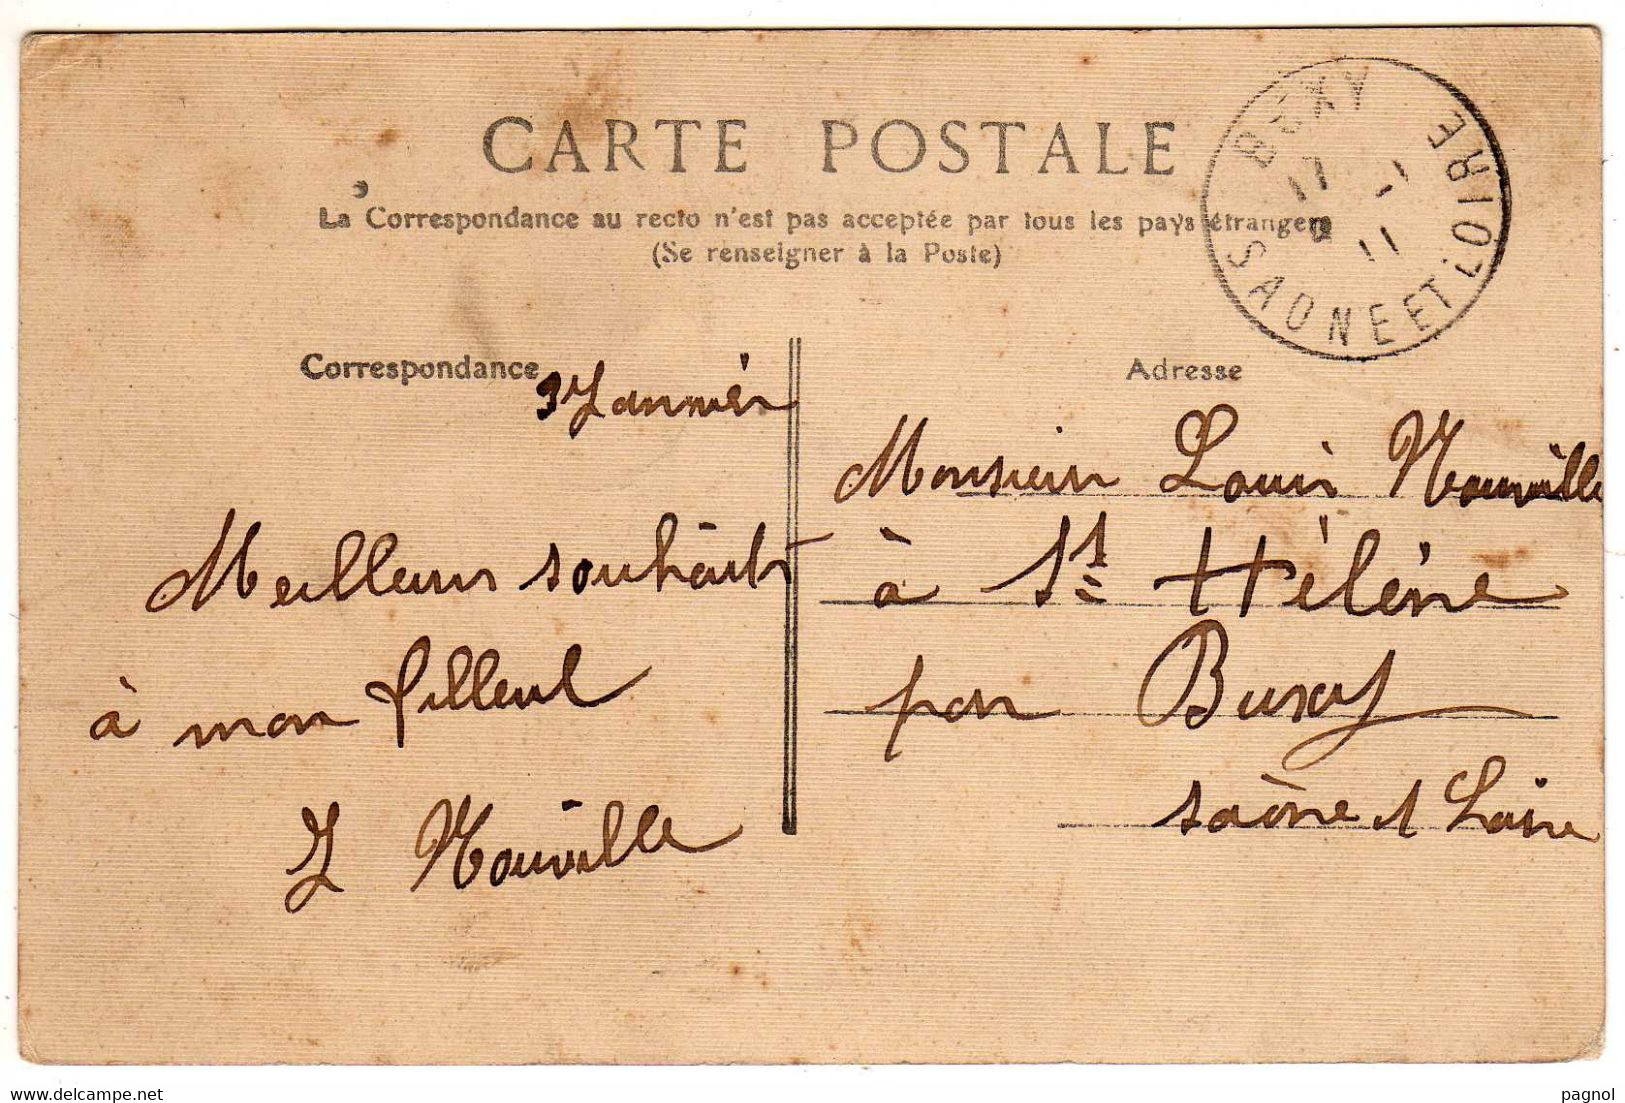 CARTE POSTALE
La Correspondance au recto n'est pas acceptée par tous les pays étrangers
(Se renseigner à la Poste)
BUXY
17
11
SAONE ET LOIRE
Correspondance
Adresse
3 Janvier
Meilleurs souhaits
à mon filleul
Nouville
Monsieur Louis Nouville
à St Hélène
par Buxy
saône et Loire
pagnol